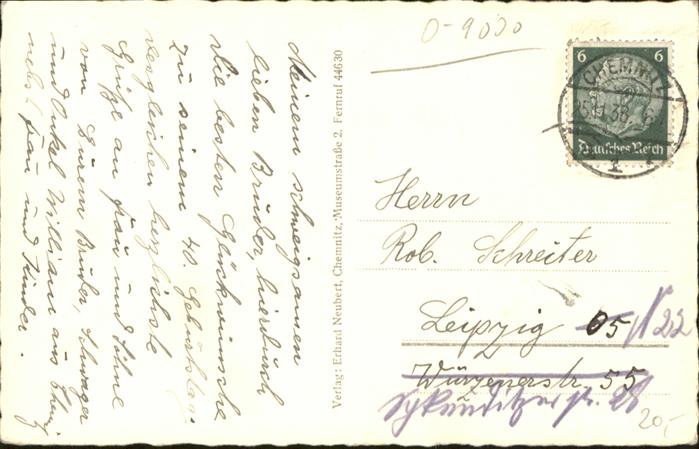 Meinem schweigsamen
lieben Bruder, hierdurch
die besten Glückwünsche
zu seinem 40. Geburtstag.
Desgleichen herzlichste
Grüße an Frau und Söhne
von Eurem Bruder, Schwager
und Onkel William aus Chemn.
nebst Frau und Kinder.
Verlag: Erhard Neubert, Chemnitz, Museumstraße 2, Fernruf 44630
O-9000
6 6
CHEMNITZ
Deutsches Reich
1
Herrn
Rob. Schreiter
Leipzig O5 N 22
Würzenerstr. 55
20,-